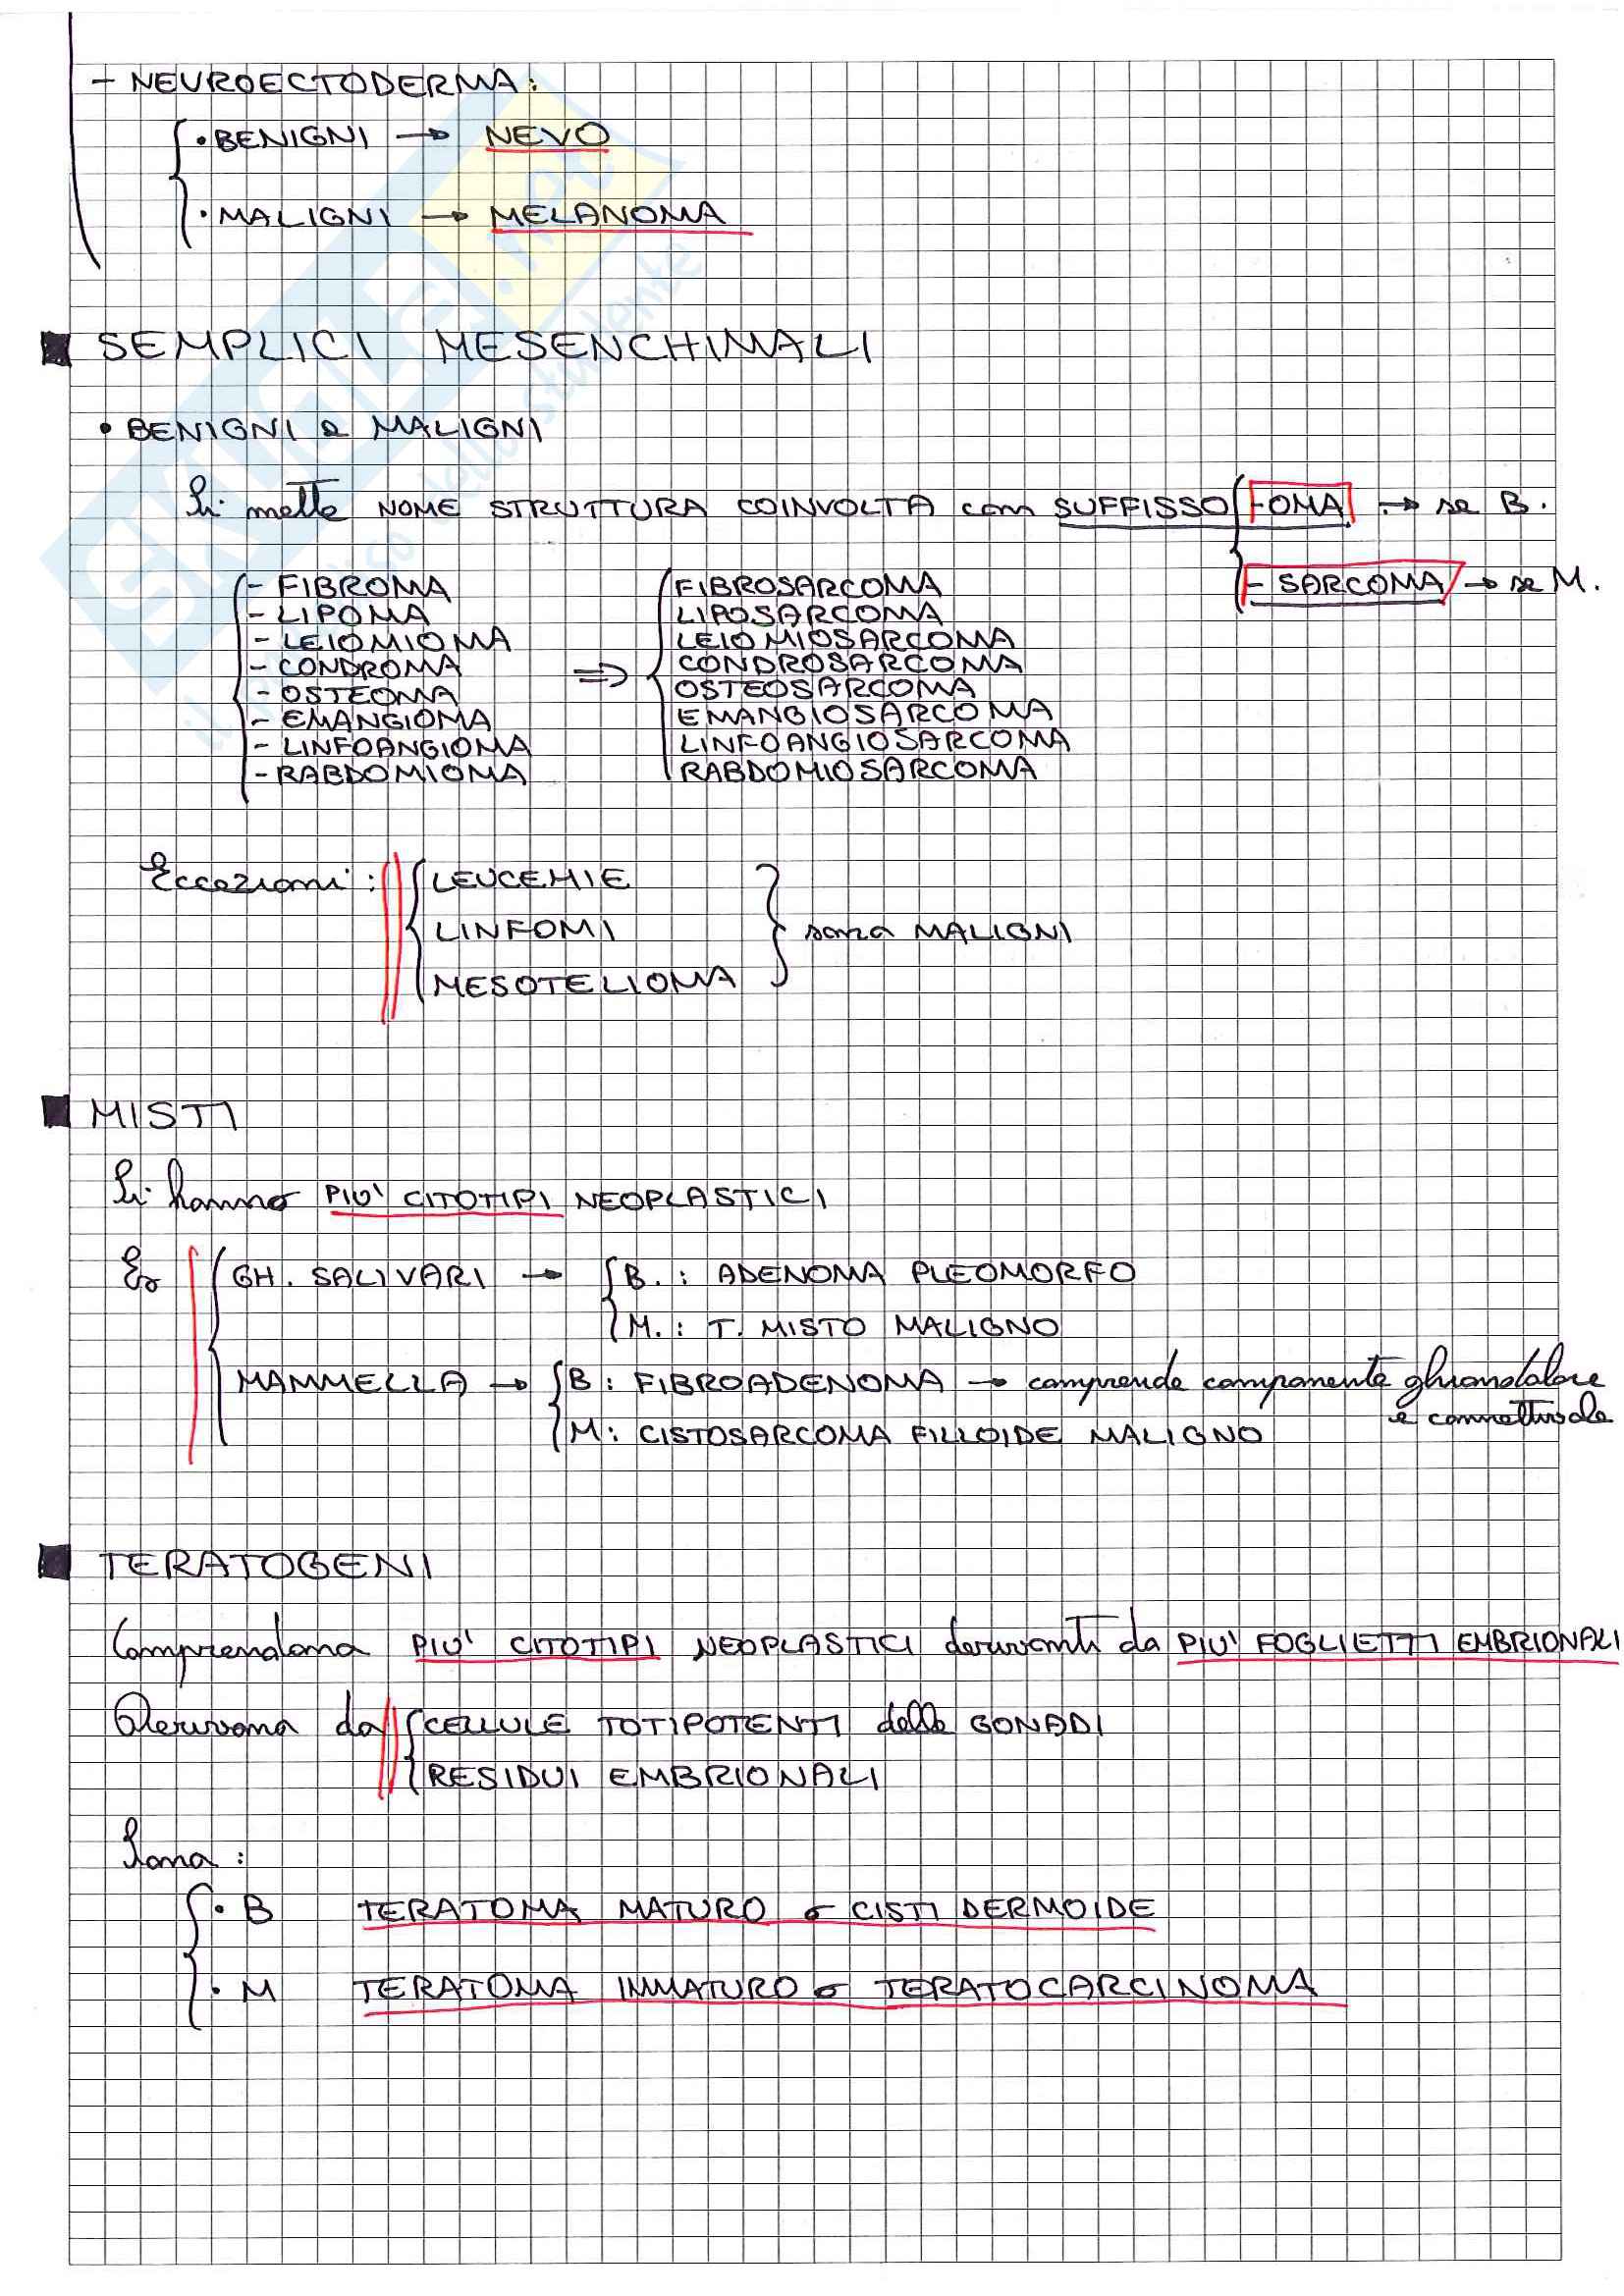 - NEUROECTODERMA:
• BENIGNI → NEVO
• MALIGNI → MELANOMA
SEMPLICI MESENCHIMALI
• BENIGNI e MALIGNI
Si mette NOME STRUTTURA COINVOLTA con SUFFISSO -OMA → se B.
- SARCOMA → se M.
- FIBROMA ⇒ FIBROSARCOMA
- LIPOMA LIPOSARCOMA
- LEIOMIOMA LEIOMIOSARCOMA
- CONDROMA CONDROSARCOMA
- OSTEOMA OSTEOSARCOMA
- EMANGIOMA EMANGIOSARCOMA
- LINFOANGIOMA LINFOANGIOSARCOMA
- RABDOMIOMA RABDOMIOSARCOMA
Eccezioni: LEUCEMIE
LINFOMI sono MALIGNI
MESOTELIOMA
MISTI
Si hanno PIU' CITOTIPI NEOPLASTICI
Es GH. SALIVARI → B. : ADENOMA PLEOMORFO
M. : T. MISTO MALIGNO
MAMMELLA → B : FIBROADENOMA → comprende componente ghiandolare
e connettivale
M : CISTOSARCOMA FILLOIDE MALIGNO
TERATOGENI
Comprendono PIU' CITOTIPI NEOPLASTICI derivanti da PIU' FOGLIETTI EMBRIONALI
Derivano da CELLULE TOTIPOTENTI delle GONADI
RESIDUI EMBRIONALI
Sono :
• B TERATOMA MATURO o CISTI DERMOIDE
• M TERATOMA IMMATURO o TERATOCARCINOMA
SKUOLA.net